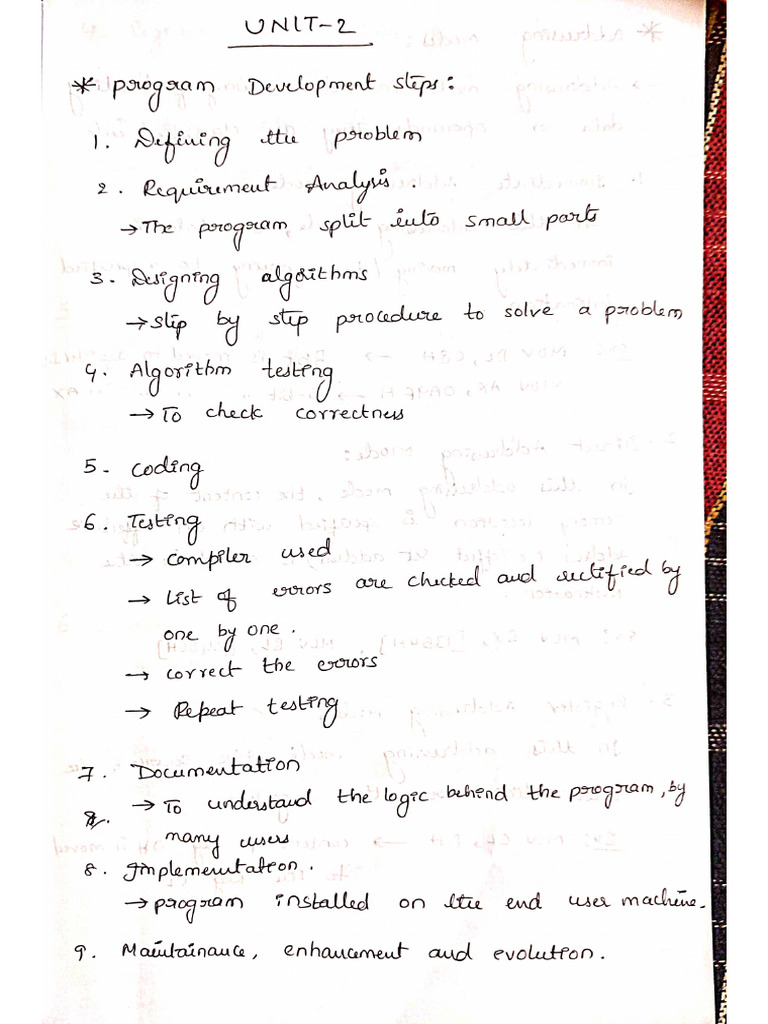 UNIT-2
* Program Development steps:
1. Defining the problem
2. Requirement Analysis.
→ The program split into small parts
3. Designing algorithms
→ step by step procedure to solve a problem
4. Algorithm testing
→ To check correctness
5. coding
6. Testing
→ compiler used
→ List of errors are checked and rectified by
one by one.
→ correct the errors
→ Repeat testing
7. Documentation
→ To understand the logic behind the program, by
many users
8. Implementation.
→ program installed on the end user machine.
9. Maintainance, enhancement and evolution.